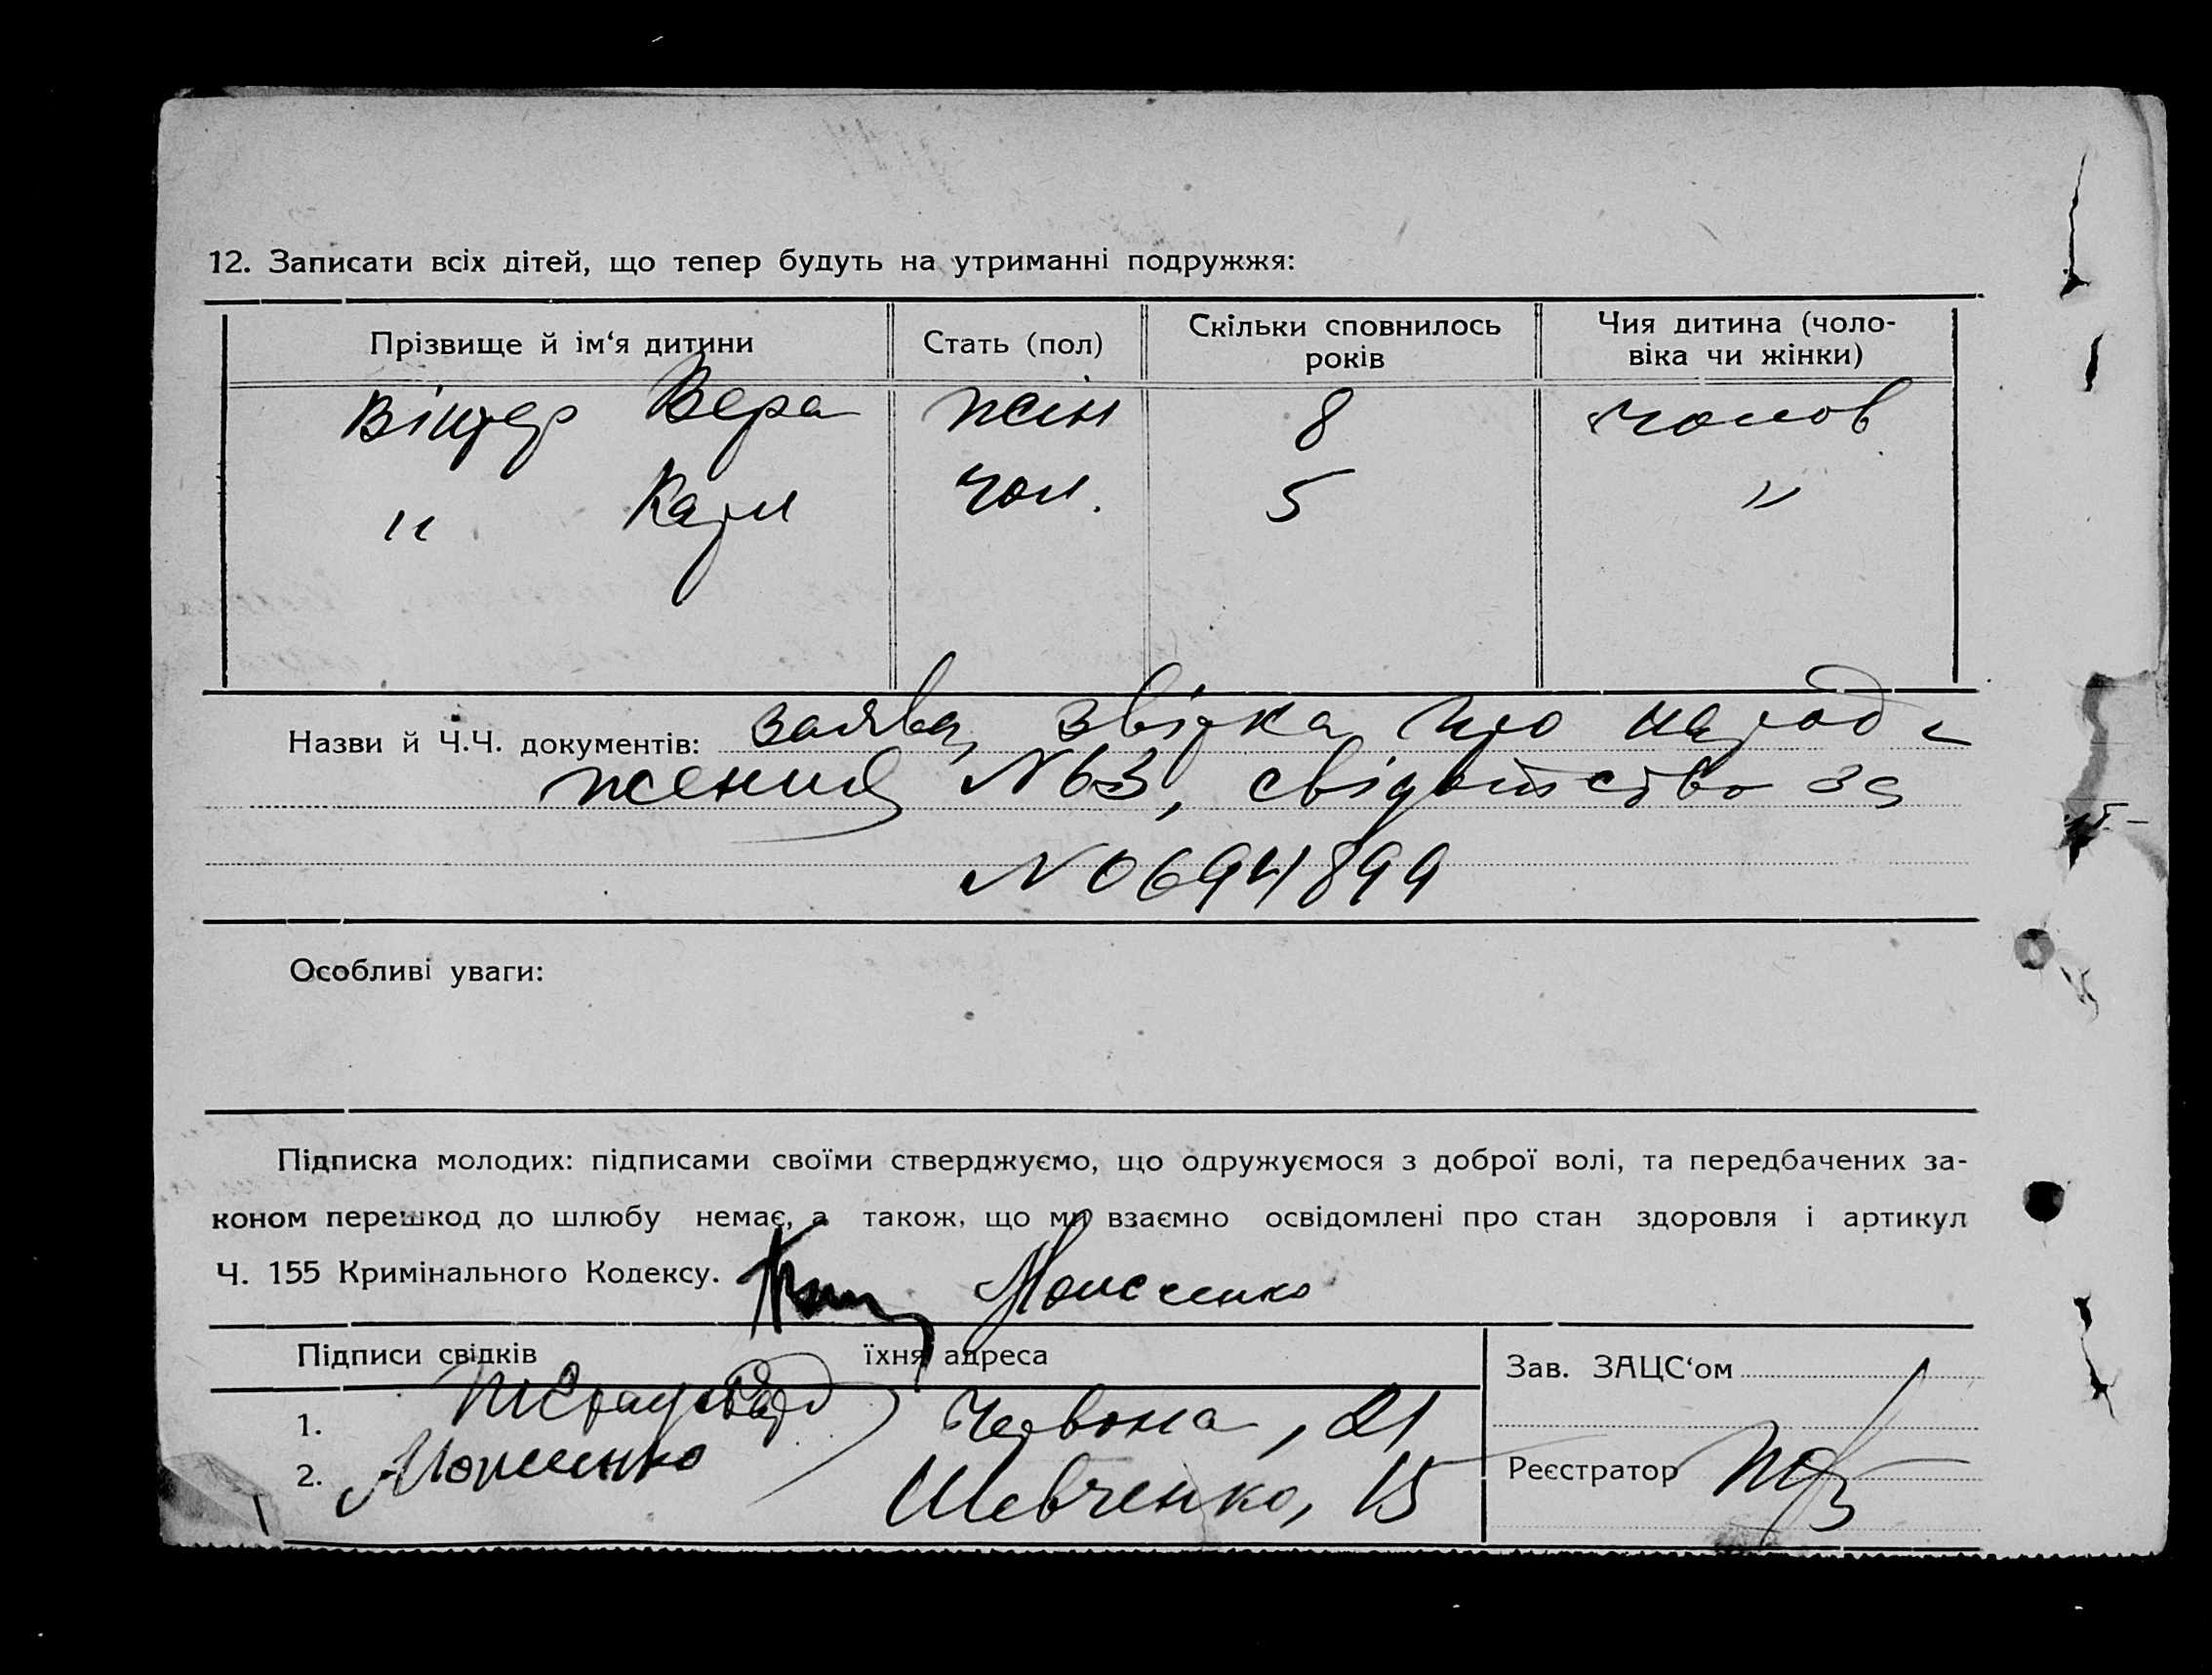 12. Записати всіх дітей, що тепер будуть на утриманні подружжя:
Прізвище й ім‘я дитини Стать (пол) Скільки сповнилось років Чия дитина (чоло-віка чи жінки)
Вінтер Вера жін 8 чолов
" Карл чол. 5 "
Назви й Ч.Ч. документів: заява, звірка про народ
ження N63, свідотство за
N0694899
Особливі уваги:
Підписка молодих: підписами своїми стверджуємо, що одружуємося з доброї волі, та передбачених за-
коном перешкод до шлюбу немає, а також, що ми взаємно освідомлені про стан здоровля і артикул
Ч. 155 Кримінального Кодексу. Моисеенко
Підписи свідків їхня адреса Зав. ЗАЦС‘ом
1. Червона, 21
2. Шевченко, 15 Реєстратор